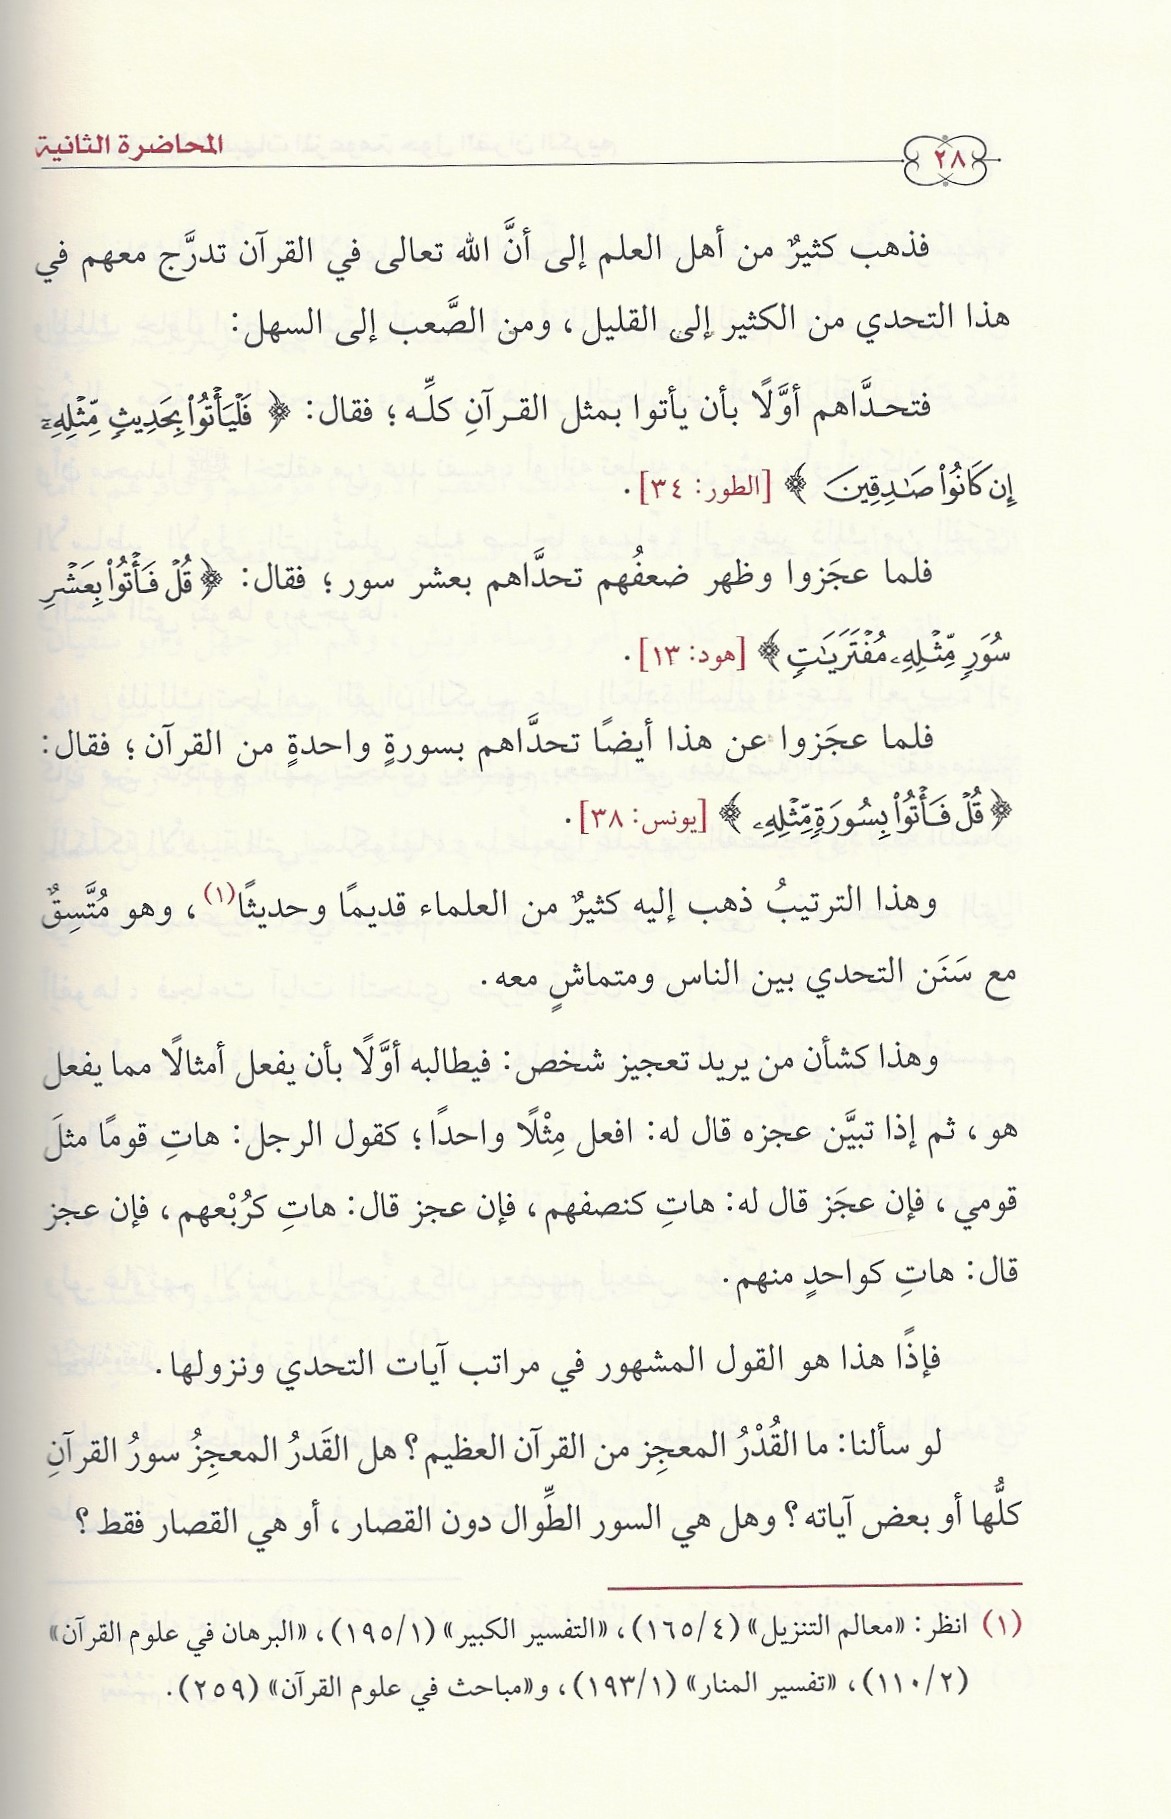 ٢٨
المحاضرة الثانية
فذهب كثيرٌ من أهل العلم إلى أنَّ الله تعالى في القرآن تدرَّج معهم في
هذا التحدي من الكثير إلى القليل، ومن الصَّعب إلى السهل:
فتحدَّاهم أوَّلًا بأن يأتوا بمثل القرآنِ كلِّه؛ فقال: ﴿ فَلْيَأْتُوا۟ بِحَدِيثٍ مِّثْلِهِۦٓ
إِن كَانُوا۟ صَٰدِقِينَ ﴾ [الطور: ٣٤].
فلما عجَزوا وظهر ضعفُهم تحدَّاهم بعشر سور؛ فقال: ﴿ قُلْ فَأْتُوا۟ بِعَشْرِ
سُوَرٍ مِّثْلِهِۦ مُفْتَرَيَٰتٍ ﴾ [هود: ١٣].
فلما عجَزوا عن هذا أيضًا تحدَّاهم بسورةٍ واحدةٍ من القرآن؛ فقال:
﴿ قُلْ فَأْتُوا۟ بِسُورَةٍ مِّثْلِهِۦ ﴾ [يونس: ٣٨].
وهذا الترتيبُ ذهب إليه كثيرٌ من العلماء قديمًا وحديثًا(١)، وهو مُتَّسِقٌ
مع سَنَن التحدي بين الناس ومتماشٍ معه.
وهذا كشأن من يريد تعجيز شخص: فيطالبه أوَّلًا بأن يفعل أمثالًا مما يفعل
هو، ثم إذا تبيَّن عجزه قال له: افعل مِثْلًا واحدًا؛ كقول الرجل: هاتِ قومًا مثلَ
قومي، فإن عجَز قال له: هاتِ كنصفهم، فإن عجز قال: هاتِ كرُبْعهم، فإن عجز
قال: هاتِ كواحدٍ منهم.
فإذًا هذا هو القول المشهور في مراتب آيات التحدي ونزولها.
لو سألنا: ما القُدْرُ المعجِز من القرآن العظيم؟ هل القَدرُ المعجِزُ سورُ القرآنِ
كلُّها أو بعض آياته؟ وهل هي السور الطِّوال دون القصار، أو هي القصار فقط؟
(١) انظر: «معالم التنزيل» (٤/ ١٦٥)، «التفسير الكبير» (١/ ١٩٥)، «البرهان في علوم القرآن»
(٢/ ١١٠)، «تفسير المنار» (١/ ١٩٣)، و«مباحث في علوم القرآن» (٢٥٩).